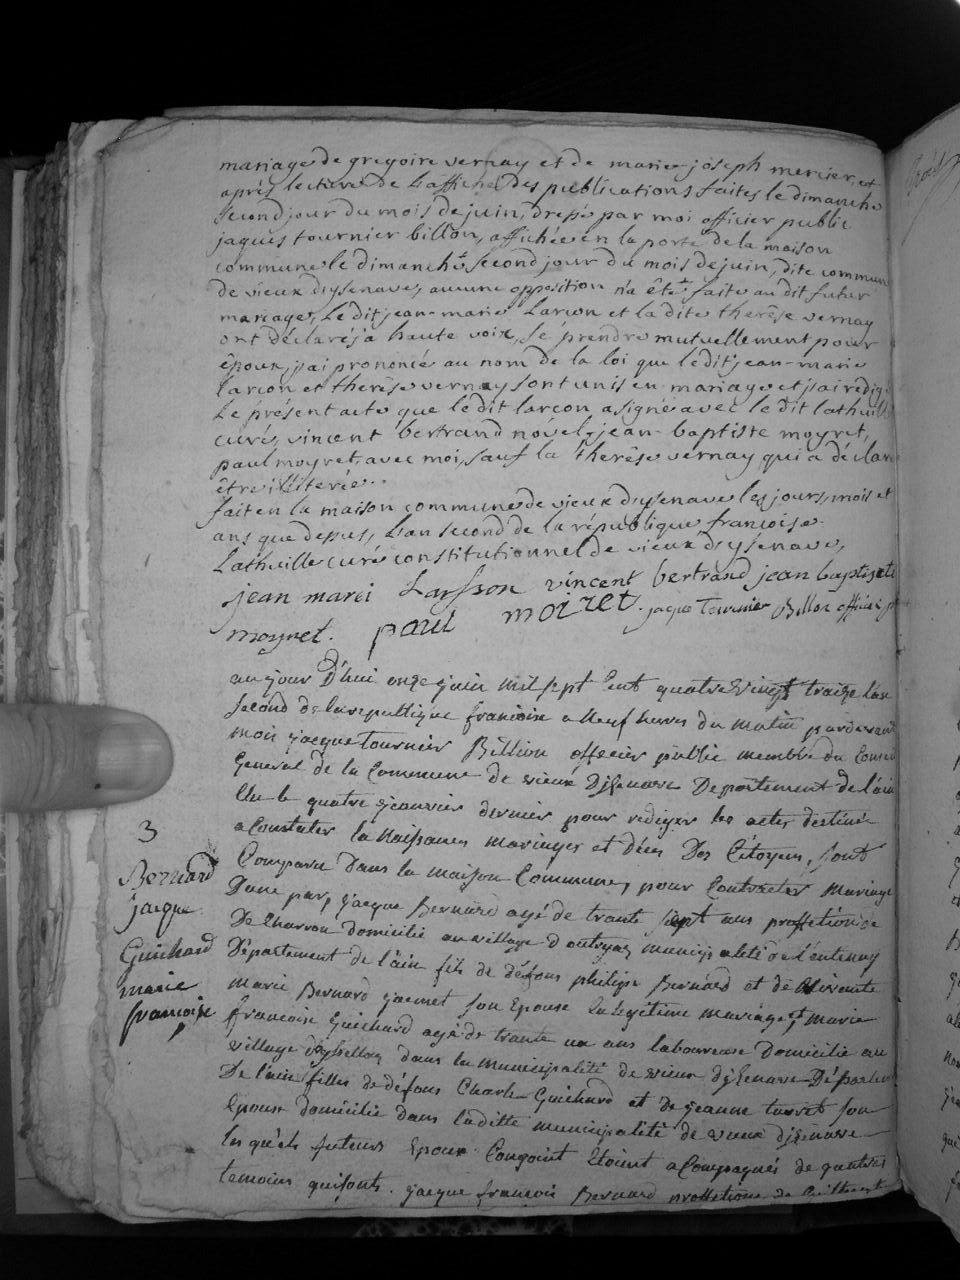 mariage de gregoire vernay et de marie joseph mercier, et
après lecture de l'affiche des publications faites le dimanche
second jour du mois de juin, dressé par moi officier public
jaques tournier billon, affichée en la porte de la maison
commune le dimanche second jour du mois de juin, dite commune
de vieux dysenave, aucune opposition n'a été faite au dit futur
mariage, Le dit jean-marie Larcon et la dite therèse vernay
ont déclarés a haute voix, se prendre mutuellement pour
époux, j'ai prononcé au nom de la loi que le dit jean-marie
larcon et therèse vernay sont unis en mariage et j'ai rédigé
Le présent acte que le dit larcon a signé avec le dit lathuille
curé, vincent bertrand novel, jean-baptiste moyret,
paul moyret, avec moi, sauf la therèse vernay qui a déclaré
être illiterée..
fait en la maison commune de vieux dysenave les jours, mois et
ans que dessus, L'an second de la république françoise.
Lathuille curé constitutionnel de vieux dysenave,
jean marei Larsson vincent bertrand jean baptiste
moyret. paul moizet. jaque tournier Billon officier
au jour D'hui onze juin mil sept Cent quatre vingt traize l'an
second de la republique francoise a neuf heures du matin pardevant
moi jacque tournier Billion officier public membre du Conseil
General de la Commune de vieux Djsenave Departement de l'ain
Elu le quatre jeanvier dernier pour rediger les actes destiné
a Constater la naissances mariages et déces Des Citoyens, sont
Comparu Dans la maison Commune, pour Contracter mariage
Dune par, jacque Bernard agé de trante sept ans proffetion de
De Charron domicilié au village d'outryaz municipalité de lentenay
Département de l'ain fils de défons philipe Bernard et de
marie Bernard jacmet son Epouse la legitime mariage et marie
francoise Guichard agé de trante un ans laboureuse Domicilie au
village dans la municipalité de vieux djsenave Département
De l'ain filles de défons Charle Guichard et de jeanne son
Epouse domicilié dans laditte municipalité de vieux djsenave
lesquels futeurs Epoux Conjoint Etoint acompagnés de quatres
temoins qui sont. jacque francois Bernard proffetione de
3
Bernard
jacque
Guichard
marie
francoise